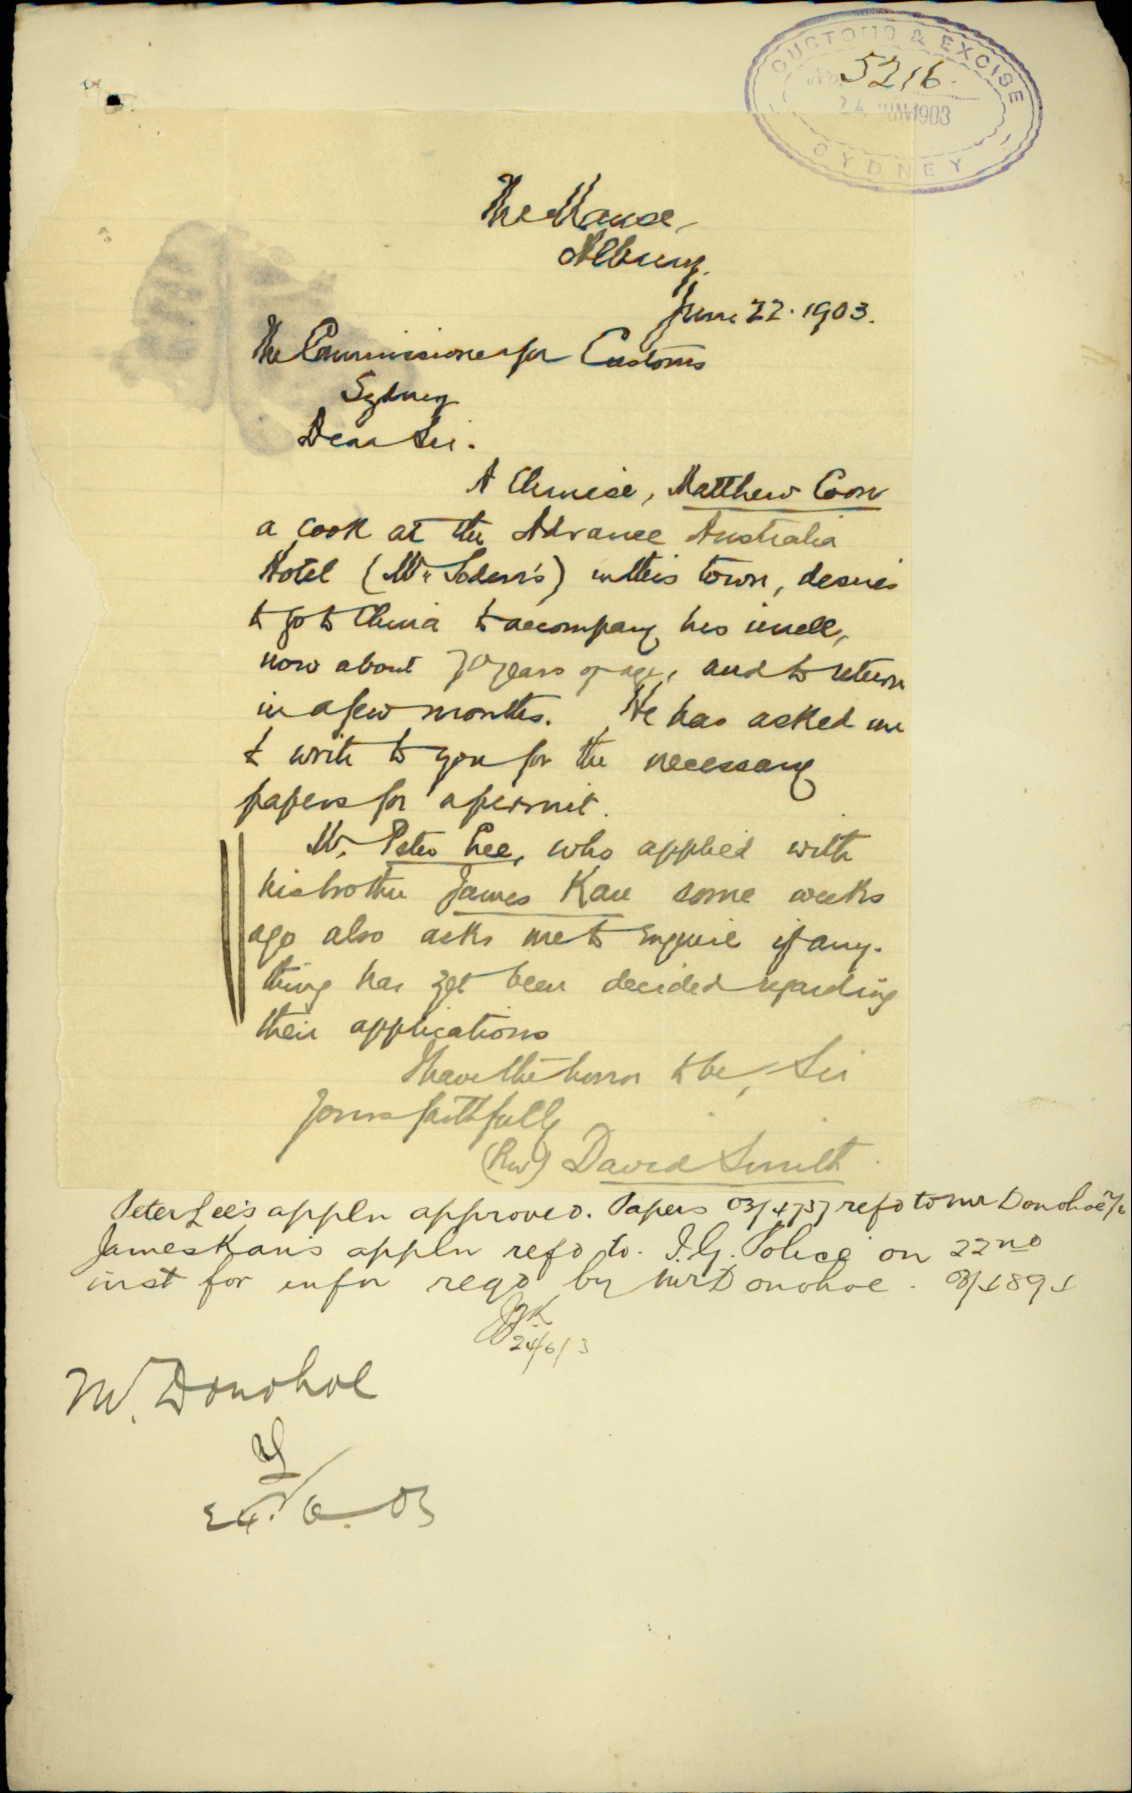 CUSTOMS & EXCISE
No. 5216
24 JUN 1903
SYDNEY
The Manse,
Albury.
June 22. 1903.
The Commissioner for Customs
Sydney
Dear Sir.
A Chinese, Matthew Coon
a cook at the Advance Australia
Hotel (Mr Soden's) in this town, desires
to go to China to accompany his uncle,
now about 70 years of age, and to return
in a few months. He has asked me
to write to you for the necessary
papers for a permit.
Mr. Peter Lee, who applied with
his brother James Kau some weeks
ago also asks me to enquire if any-
thing has yet been decided regarding
their applications
I have the honor to be, Sir
Yours faithfully
(Rev) David Smith
Peter Lee's appln approved. Papers 03/4757 refd to Mr Donohoe
James Kau's appln refd to I.G. Police on 22nd
inst for infn reqd by Mr Donohoe. 03/
24/6/3
Mr. Donohoe
24.6.03